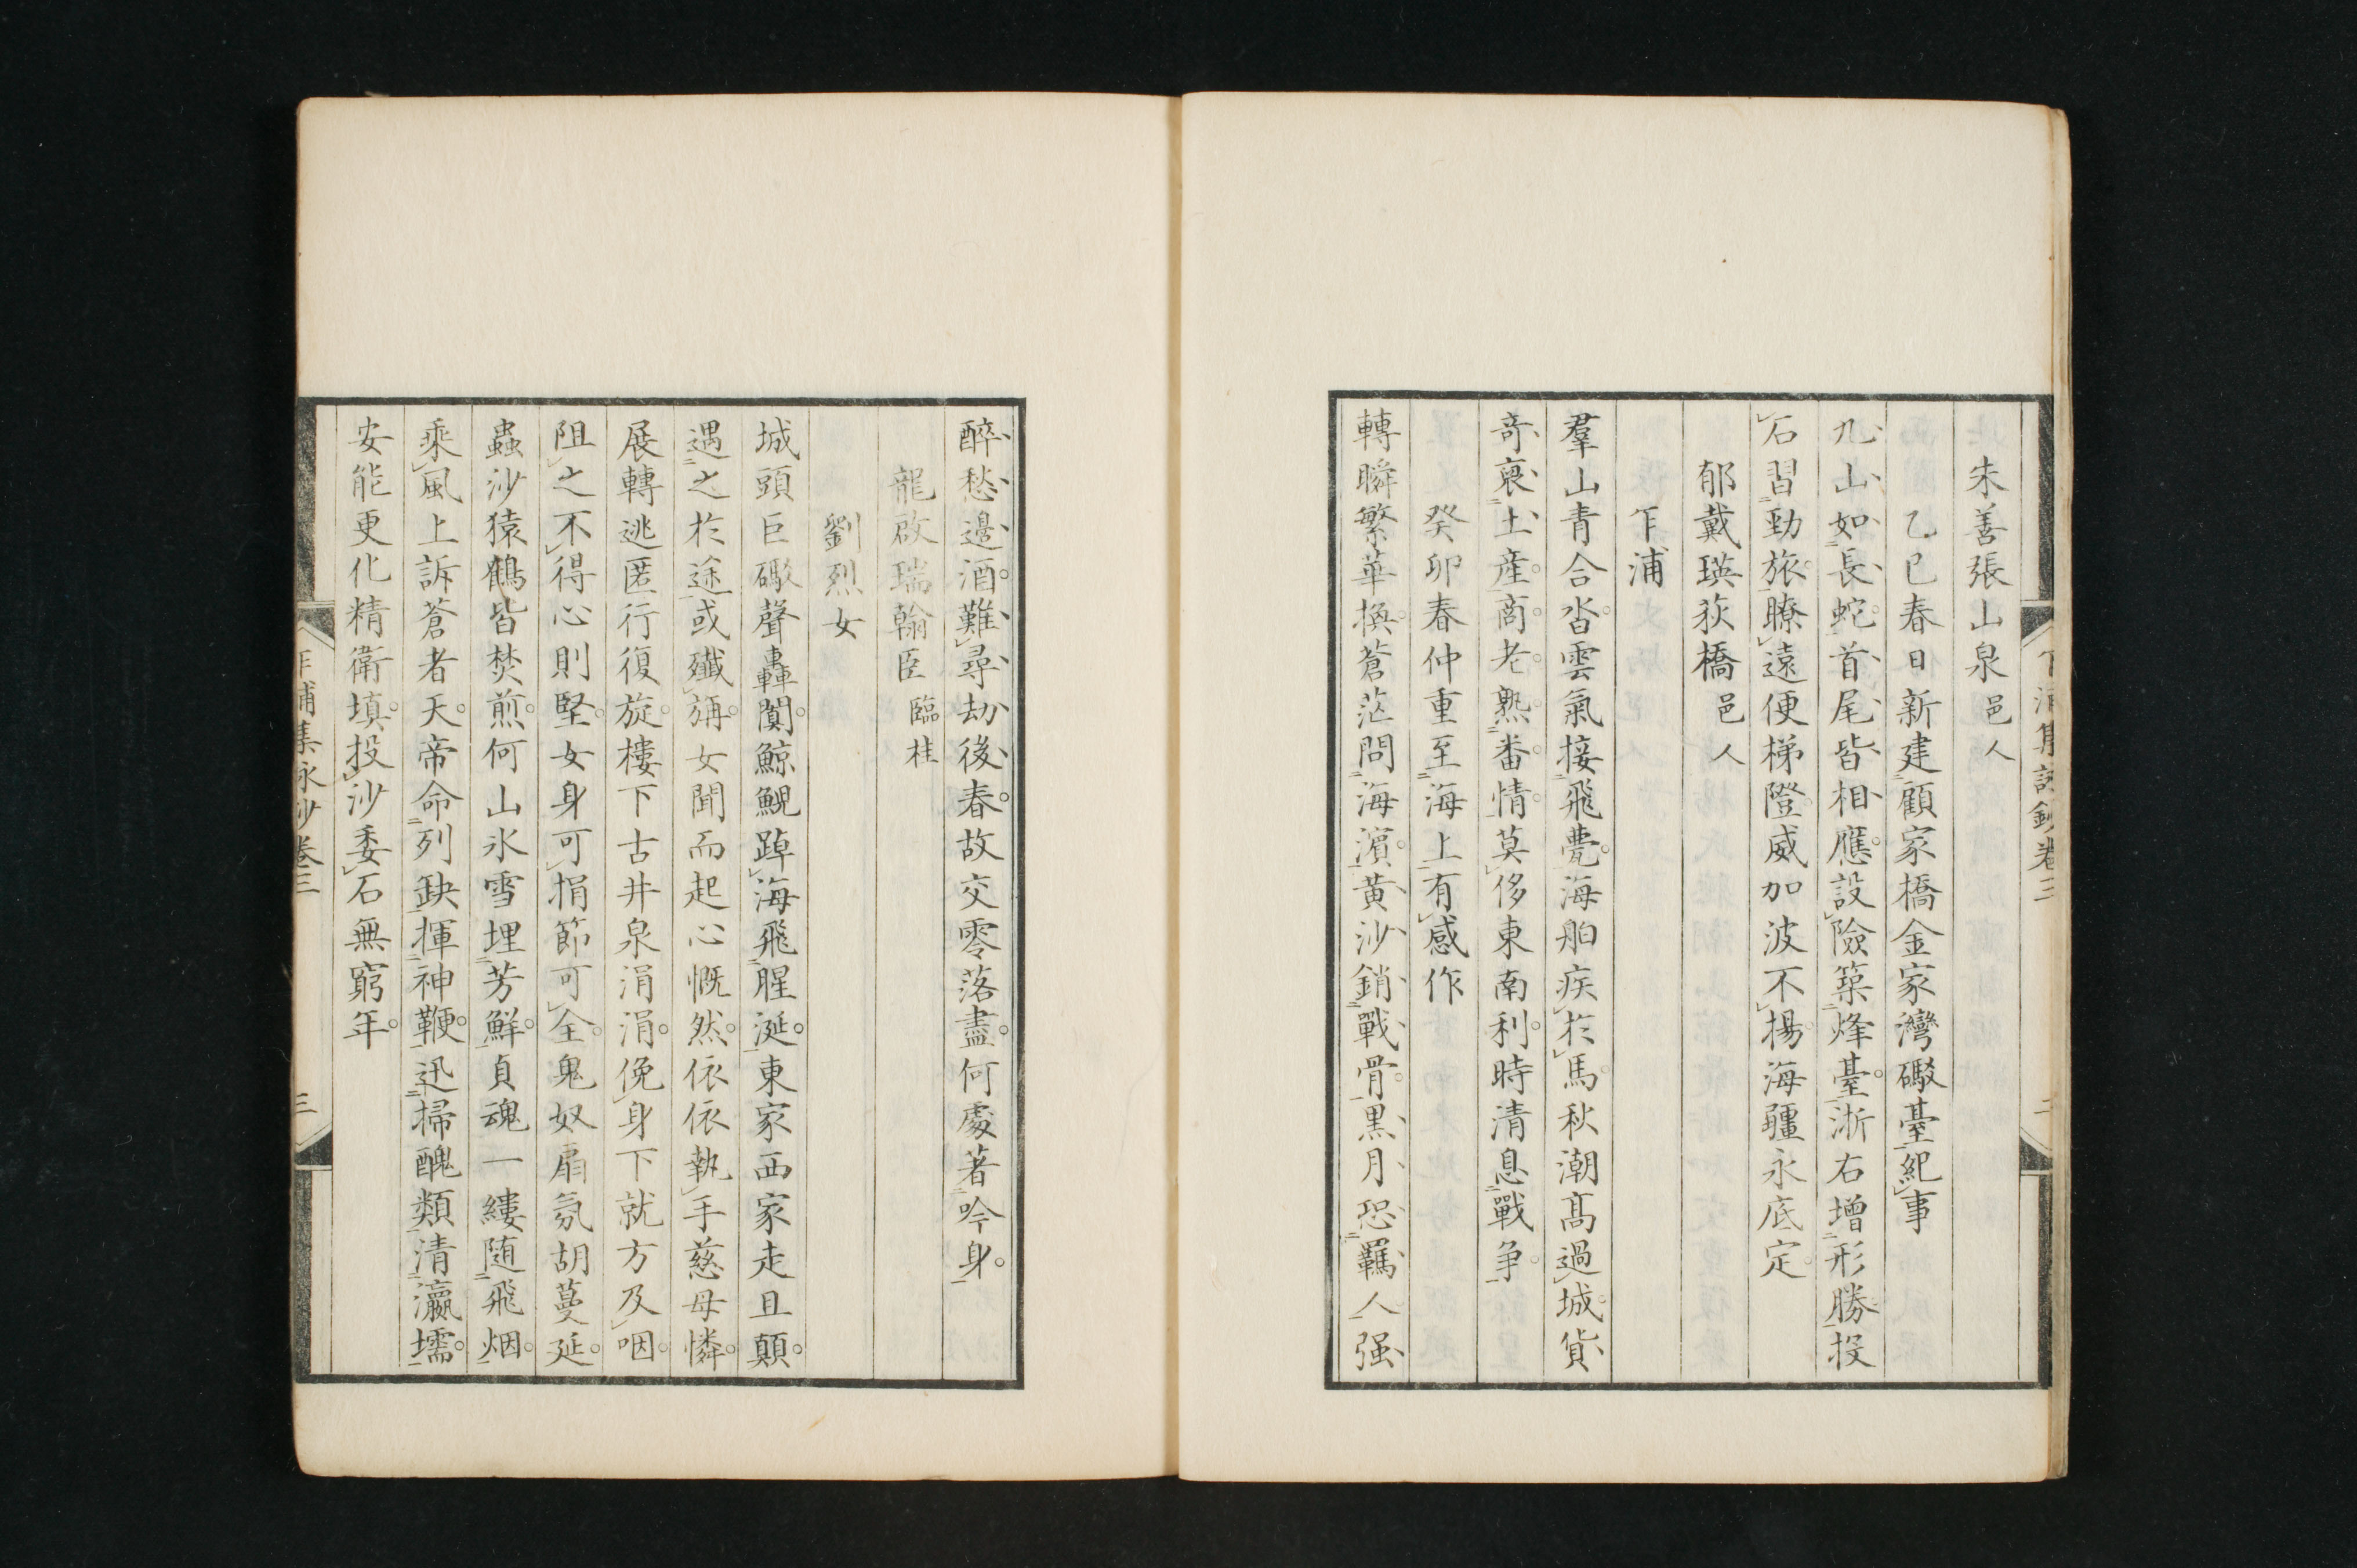 朱善張山泉邑人
乙巳春日新建顧家橋金家灣礮臺紀事
九山如長蛇首尾皆相應設險築烽臺浙右增形勝投
石習勁旅瞭遠便梯隥威加波不揚海疆永底定
郁戴瑛荻橋邑人
乍浦
羣山青合沓雲氣接飛甍海舶疾於馬秋潮髙過城貨
奇裒土産商老熟番情莫侈東南利時清息戰争
癸卯春仲重至海上有感作
轉瞬繁華換蒼茫問海濵黄沙銷戰骨黒月恐羈人强
醉愁邉酒難尋劫後春故交零落盡何處著吟身
龍啟瑞翰臣臨桂
劉烈女
城頭巨礮聲轟闐鯨鯢踔海飛腥涎東家西家走且顛
遇之於途或殲旃女聞而起心慨然依依執手慈母憐
展轉逃匿行復旋樓下古井泉涓涓俛身下就方及咽
阻之不得心則堅女身可捐節可全鬼奴扇氛胡蔓延
蟲沙猿鶴皆焚煎何山氷雪埋芳鮮貞魂一縷随飛烟
乘風上訴蒼者天帝命列缺揮神鞭迅掃醜類清瀛壖
安能更化精衛填投沙委石無窮年
乍浦集詠鈔卷三
三